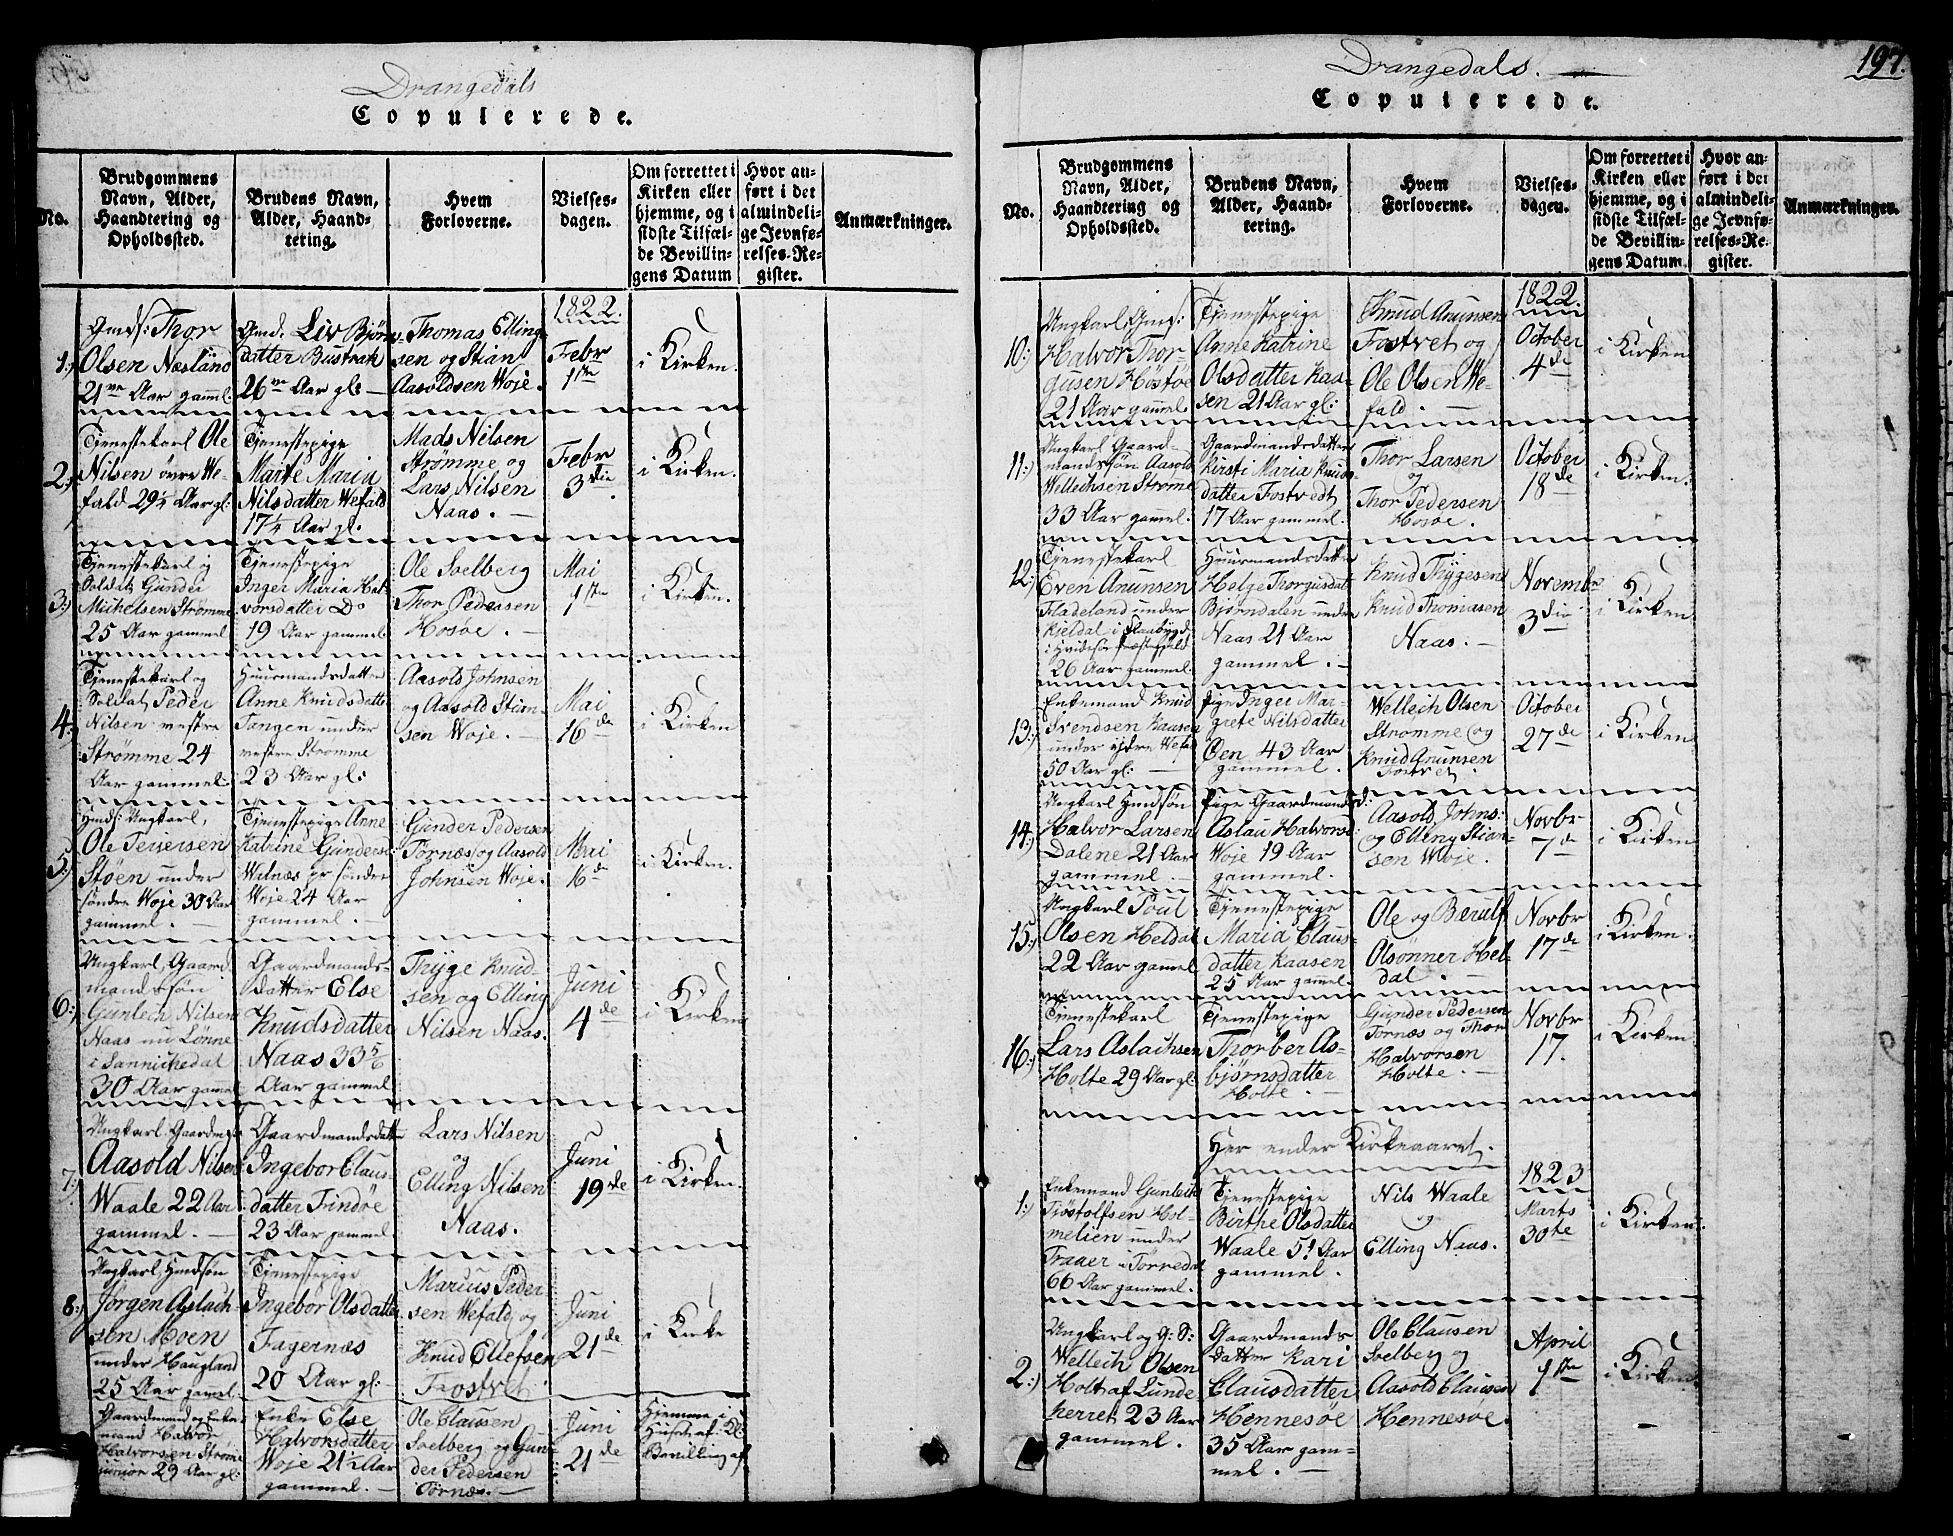 Drangedals
Copulerede.
No.
Brudgommens
Navn, Alder,
Haandtering og
Opholdssted.
Brudens Navn,
Alder, Haand-
tering.
Hvem
Forloverne.
Vielses-
dagen.
Om forrettet i
Kirken eller
hjemme, og i
sidste Tilfæl-
de Bevillin-
gens Datum
Hvor an-
ført i det
almindeli-
ge Jevnfø-
relses-Re-
gister.
Anmærkninger.
1822.
1:)
Gmds: Thor
Olsen Næsland
21ve Aar gaml.
Gmd. Liv Bjørns-
datter Bustrak
26ve Aar gl:
Thomas Elling-
sen og Stian
Aasoldsen Woje.
Febr
1ste
i Kirken.
2:)
Tjenestekarl Ole
Nilsen øvre We-
fald 29½ Aar gl:
Tjenestepige
Marte Maria
Nilsdatter Wefald
17¼ Aar gl.
Mads Nilsen
Strømme og
Lars Nilsen
Naas.
Febr
3die
i Kirken.
3:)
Tjenestekarl og
Soldat Gunder
Mickelsen Strømme
25 Aar gammel
Tjenestepige
Inger Maria Hal-
vorsdatter Do
19 Aar gammel
Ole Solberg
Thor Pedersen
Hosøe.
Mai
1ste
i Kirken.
4:)
Tjenestekarl og
Soldat Peder
Nilsen vestre
Strømme 24
Aar gammel:
Huusmandsdatter
Anne Knudsdatter
Tangen under
vestre Strømme
23 Aar gl:
Aasold Johnsen
og Aasold Stian-
sen Woje.
Mai
16de
i Kirken
5:)
Hmds: Ungkarl,
Ole Teiersen
Støen under
søndre Woje 30 Aar
gammel.
Tjenestepige Anne
Katrine Gunders:
Welnæs pr søndre
Woje 24 Aar
gammel.
Gunder Pedersen
Tørnæs og Aasold
Johnsen Woje.
Mai
16de
i Kirken.
6:)
Ungkarl, Gaard-
mandssøn
Gunlech Nilsen
Naas nu Lønne
i Sannickedal
30 Aar gamel
Gaardmands-
datter Else
Knudsdatter
Naas 33 5/6
Aar gammel
Thyge Knud-
sen og Elling
Nilsen Naas.
Juni
4de
i Kirken
7:)
Ungkarl, Gaardms:
Aasold Nilsen
Waale 22 Aar
gammel.
Gaardmandsdatter
Ingebor Claus-
datter Trindøe
23 Aar gammel
Lars Nilsen
og
Elling Nilsen
Naas.
Juni
19de
i Kirken.
8:)
Ungkarl, Hmdsøn
Jørgen Aslach-
sen Moen
under Haugland
25 Aar gamel.
Tjenestepige
Ingebor Olsdatter
Fagernæs
20 Aar gl:
Marius Peder-
sen Wefald, og
Knud Ellefsen
Fostvet
Juni
21de
i Kirke
Gaardmand og Enke-
mand Halvor
Halvorsen Strøme
junior 29 Aar gl:
Enke Else
Halvorsdatter
Woje 21½ Aar
gammel.
Ole Claussen
Solberg og Gun-
der Pedersen
Tørnæs.
Juni
21de
Hjemme i
Huset af Kl:
Bevilling af
Drangedals.
197.
Copulerede.
No.
Brudgommens
Navn, Alder,
Haandtering og
Opholdssted.
Brudens Navn,
Alder, Haand-
tering.
Hvem
Forloverne.
Vielses-
dagen.
Om forrettet i
Kirken eller
hjemme, og i
sidste Tilfæl-
de Bevillin-
gens Datum.
Hvor an-
ført i det
almindeli-
ge Jevnfø-
relses-Re-
gister.
Anmærkninger.
1822.
10:)
Ungkarl, Gms:
Halvor Thor-
gusen Hostøe
21 Aar gammel.
Tjenestepige
Anne Katrine
Olsdatter Kaa-
sen 21 Aar gl:
Knud Anunsen
Fostvet og
Ole Olsen We-
fald.
October
4de
i Kirken
11:)
Ungkarl Gaard-
mandssøn Aasold
Wellechsen Strøme
33 Aar gamel.
Gaardmandsdatter
Kirsti Maria Knuds-
datter Fostvedt
17 Aar gammel.
Thor Larsen
og
Thor Pedersen
Hosøe.
October
18de
i Kirken.
12:)
Tjenestekarl
Even Anunsen
Fladeland under
Kjeldal i Slaabygd
i Hvidesøe Præstegield
26 Aar gammel.
Huusmandsdatter
Helge Thorgusdatt:
Bjørndalen under
Naas 21 Aar
gammel.
Knud Thygesen
Knud Thomasen
Naas.
Novembr
3die
i Kirken
13:)
Enkemand Knud
Svendsen Kaasen
under ydre Wefald
50 Aar gl:
Pige Inger Mar-
grete Nilsdatter
Øen 43 Aar
gammel.
Wellech Olsen
Strømme og
Knud Anunsen
Fostvet
October
27de
i Kirken
14:)
Ungkarl Hmdsøn
Halvor Larsen
Dalene 21 Aar
gammel.
Pige Gaardmandsd:
Aslau Halvorsd:
Woje 19 Aar
gammel.
Aasold Johns:
og Elling Stian-
sen Woje.
Novbr
7de
i Kirken
15:)
Ungkarl Poul
Olsen Heldal
22 Aar gamel
Tjenestepige
Maria Claus-
datter Kaasen
25 Aar gammel.
Ole og Berulf
Olsønner Hel-
dal.
Novbr
17de
i Kirken.
16:)
Tjenestekarl
Lars Aslachsen
Holte 29 Aar gl:
Tjenestepige
Thorber As-
bjørnsdatter
Holte.
Gunder Pedersen
Tornæs og Thor
Halvorsen
Holte.
Novbr
17.
i Kirken.
Her ender Kirkeaaret.
1823
1:)
Enkemand Gunlech
Tjøstolfsen Hol-
melien under
Traaer i Tørredal
66 Aar gammel.
Tjenestepige
Birthe Olsdatter
Waale 51 Aar
gammel.
Nils Waale
og
Elling Naas.
Marts
30te
i Kirken
2:)
Ungkarl og G: S:
Wellech Olsen
Holt af Lunde
herret 23 Aar
gammel.
Gaardmands
datter Kari
Clausdatter
Hennesøe
35 Aar gam-
mel.
Ole Clausen
Solberg og
Aasold Clausen
Hennesøe.
April
1ste
i Kirken